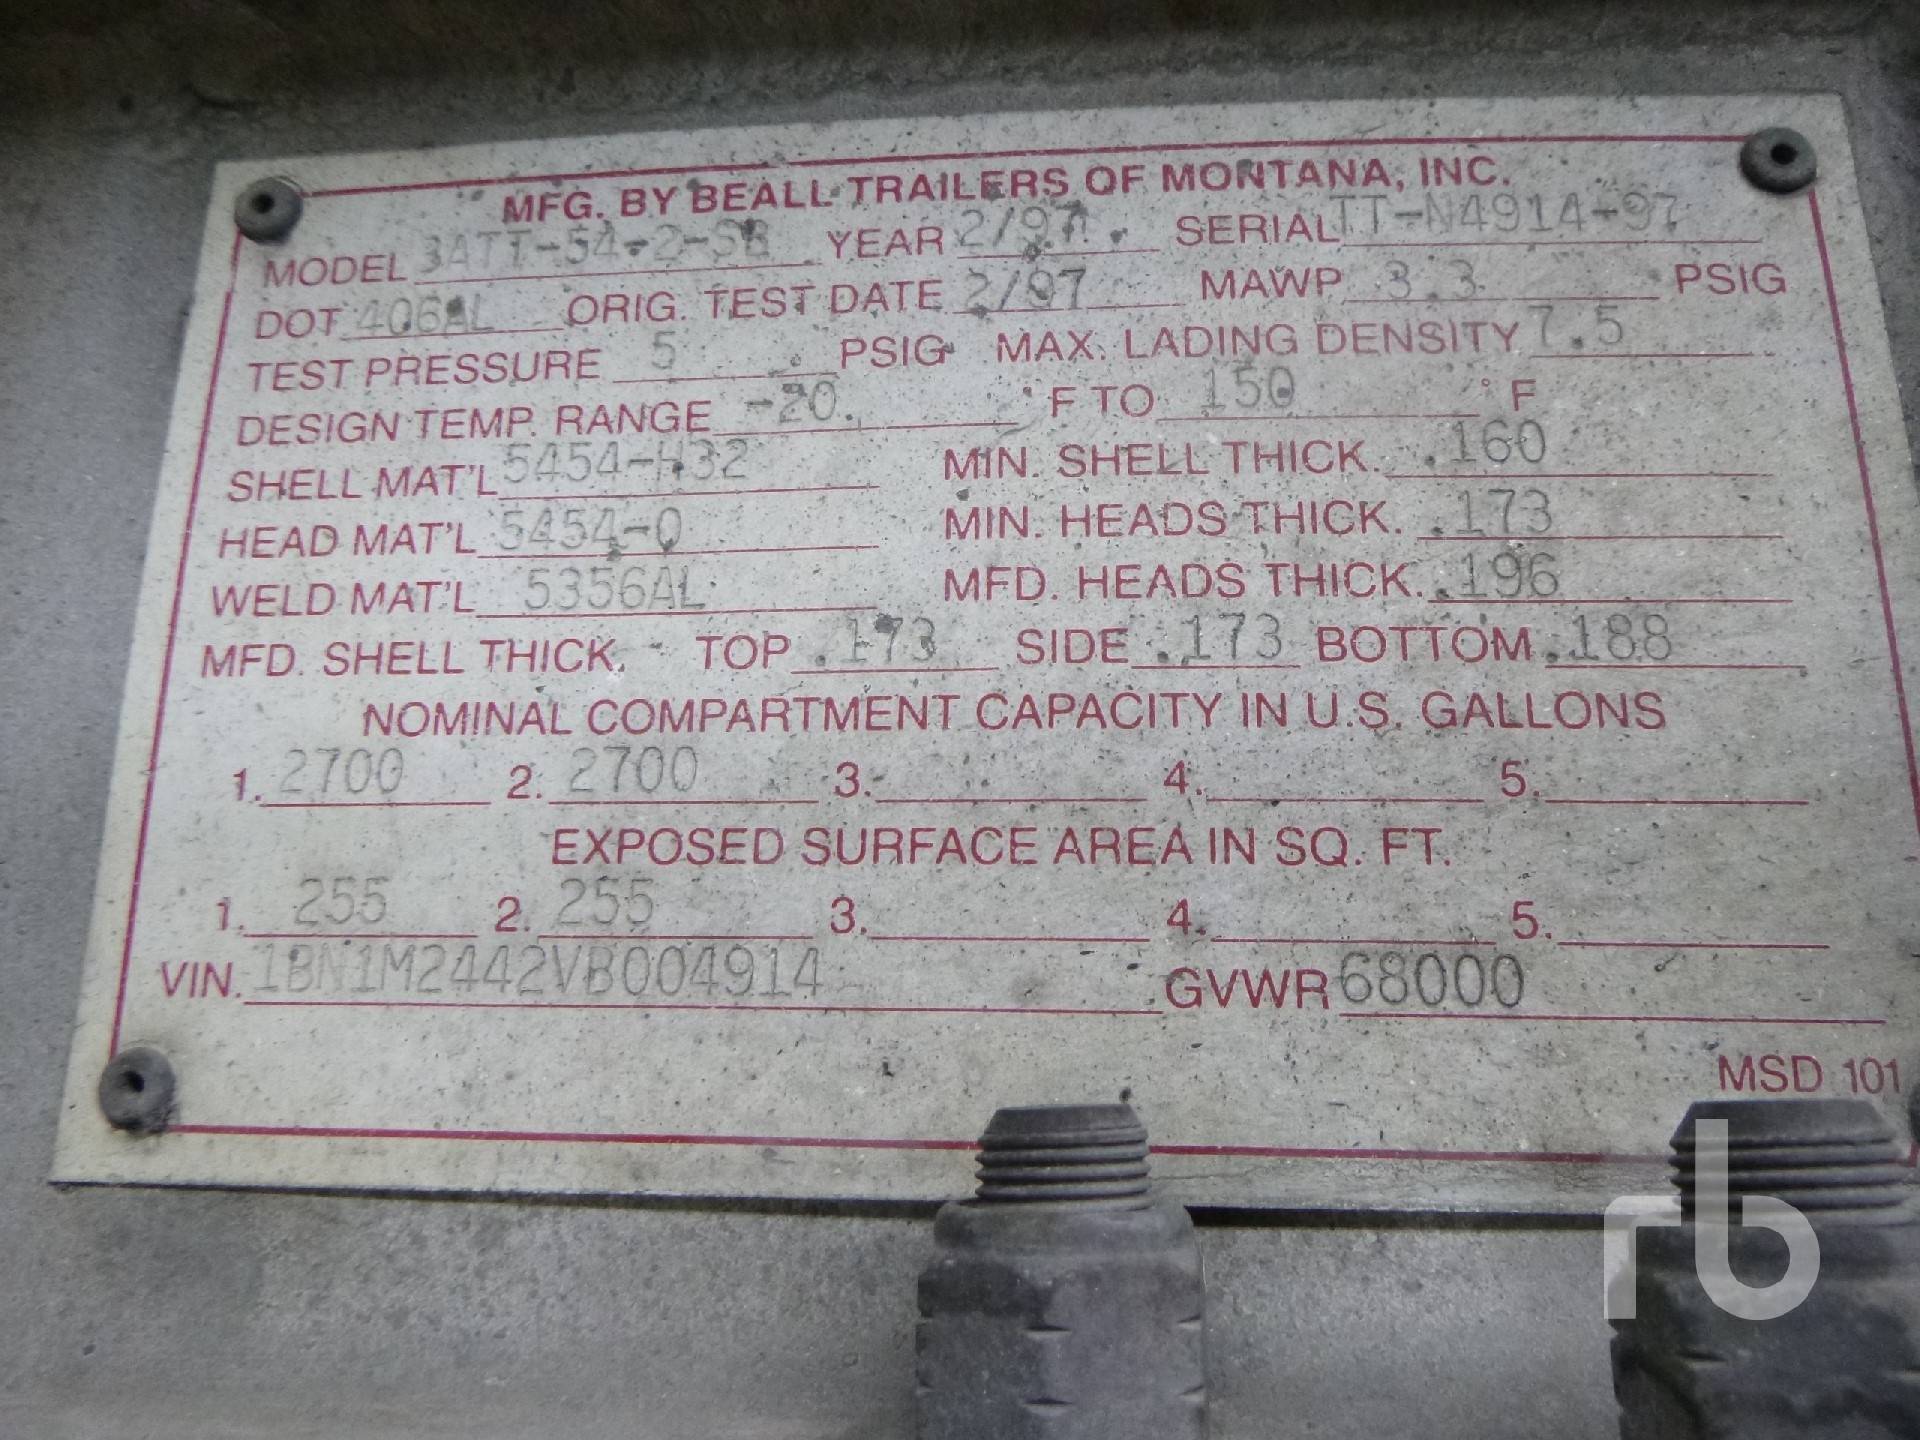 MFG. BY BEALL TRAILERS OF MONTANA, INC.
MODEL 3ATT-54-2-SB YEAR 2/97 SERIAL TT-N4914-97
DOT 406AL ORIG. TEST DATE 2/97 MAWP 3.3 PSIG
TEST PRESSURE 5 PSIG MAX. LADING DENSITY 7.5
DESIGN TEMP. RANGE -20. °F TO 150 °F
SHELL MAT'L 5454-H32 MIN. SHELL THICK. .160
HEAD MAT'L 5454-O MIN. HEADS THICK. .173
WELD MAT'L 5356AL MFD. HEADS THICK. .196
MFD. SHELL THICK. TOP .173 SIDE .173 BOTTOM .188
NOMINAL COMPARTMENT CAPACITY IN U.S. GALLONS
1. 2700 2. 2700 3. 4. 5.
EXPOSED SURFACE AREA IN SQ. FT.
1. 255 2. 255 3. 4. 5.
VIN. 1BN1M2442VB004914 GVWR 68000
MSD 101
rb